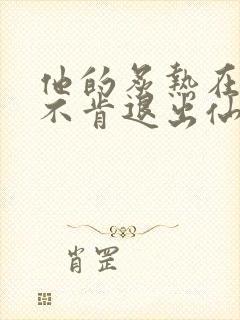 他的炙热在
不肯退出仙
肖罡